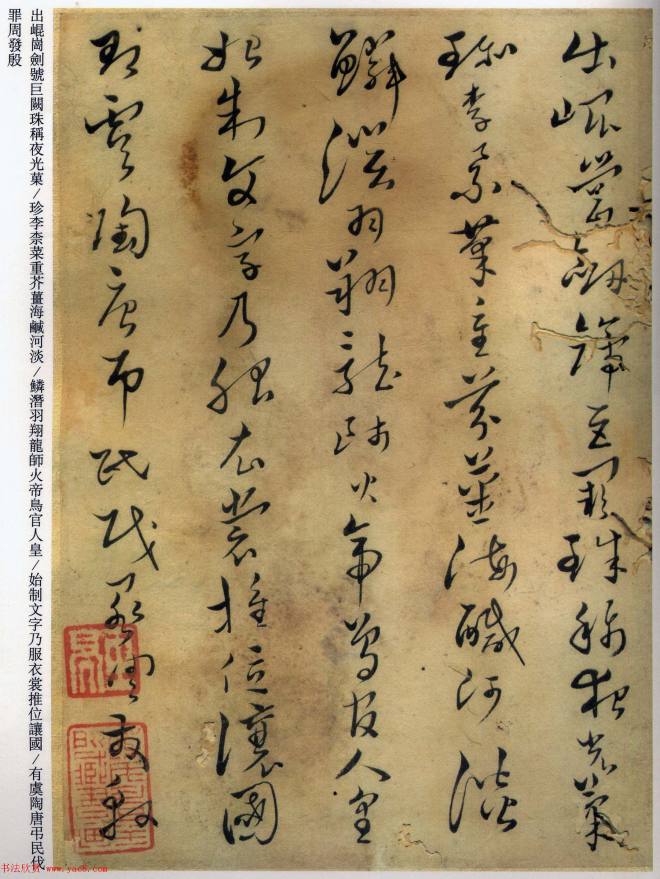 出崐崗劍號巨闕珠稱夜光菓
珍李柰菜重芥薑海鹹河淡
鱗潛羽翔龍師火帝鳥官人皇
始制文字乃服衣裳推位讓國
有虞陶唐弔民伐罪周發殷
出崐崗劍號巨闕珠稱夜光菓/珍李柰菜重芥薑海鹹河淡/鱗潛羽翔龍師火帝鳥官人皇/始制文字乃服衣裳推位讓國/有虞陶唐弔民伐
罪周發殷
书法欣赏 www.yac8.com